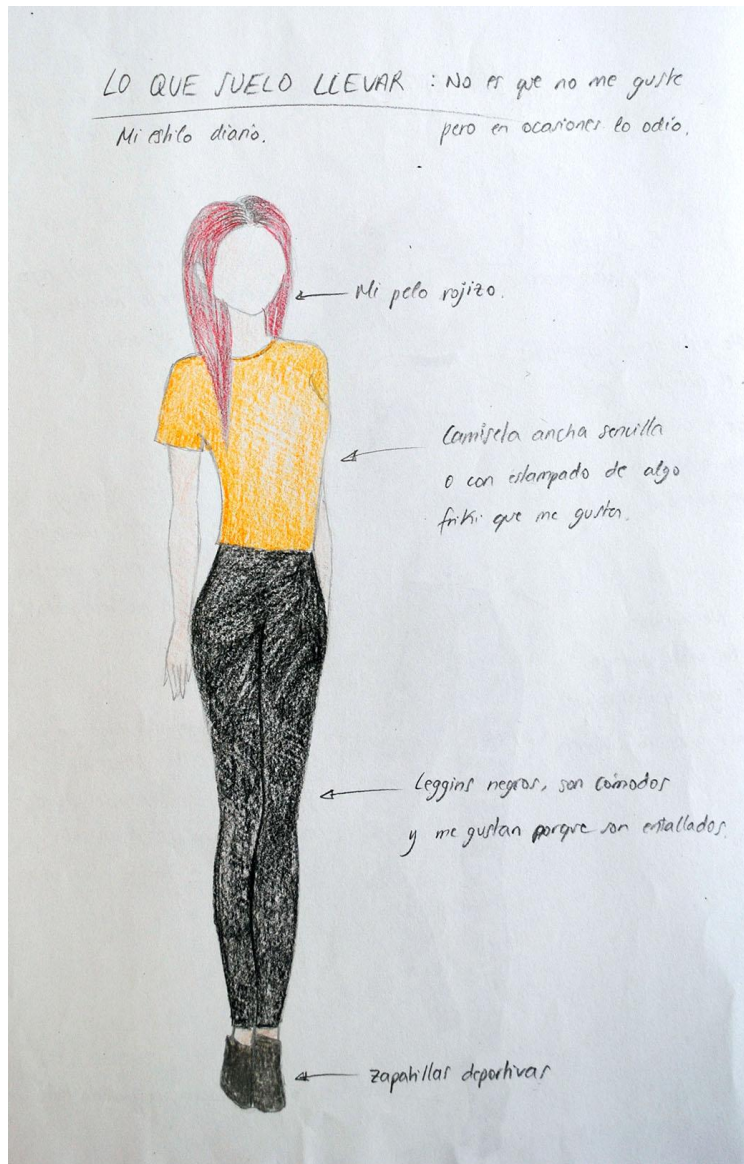 LO QUE SUELO LLEVAR : No es que no me guste
Mi estilo diario.
pero en ocasiones lo odio.
Mi pelo rojizo.
Camiseta ancha sencilla
o con estampado de algo
friki que me gusta.
Leggins negros, son cómodos
y me gustan porque son entallados.
zapatillas deportivas